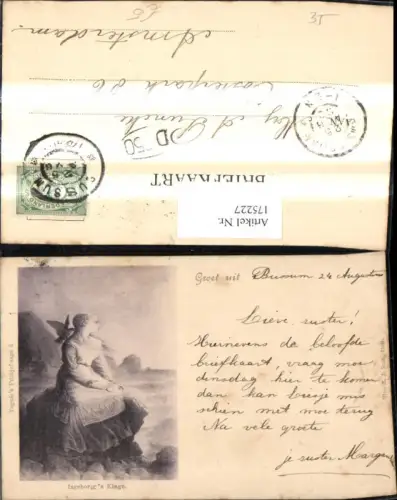 35
Amsterdam.
Oosterpark 26
D
50
BUSSUM
BRIEFKAART
Artikel Nr.
175227
Groet uit Bussum 24 Augustus
Lieve zuster!
Hiernevens de beloofde
briefkaart, vraag moe
dinsdag hier te komen
dan kan Liesje mis
schien met moe terug
Na vele groete
je zuster
Tegnér's Frithjof-sage 6
Ingeborg's Klage.